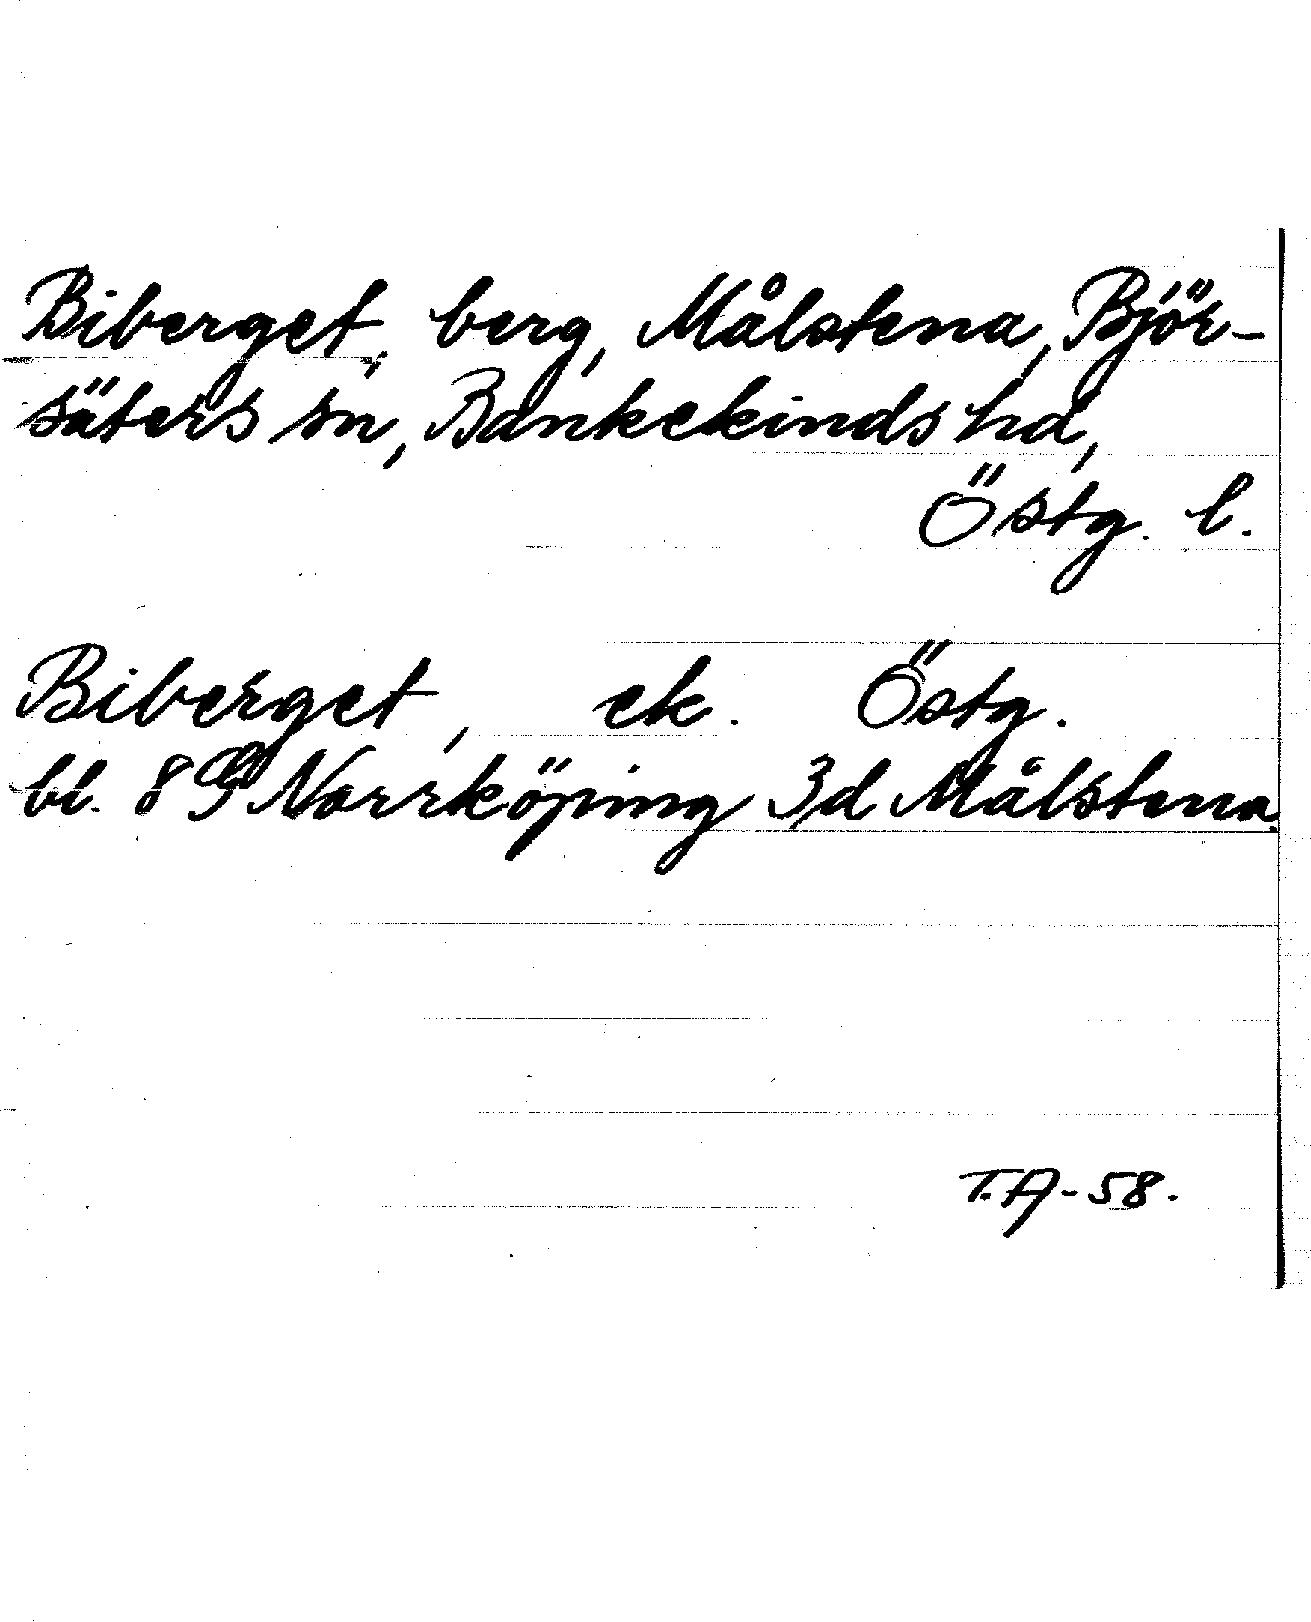 Biberget, berg, Målstena, Björ-
säters sn, Bankekinds hd,
Östg. l.
Biberget, ek. Östg.
bl. 8 G Norrköping 3d Målstena.
T.A-58.